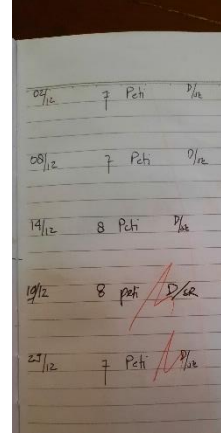 02/12 7 Peti D/SR
08/12 7 Peti D/SR
14/12 8 Peti D/SR
19/12 8 peti D/SR
25/12 7 Peti D/SR